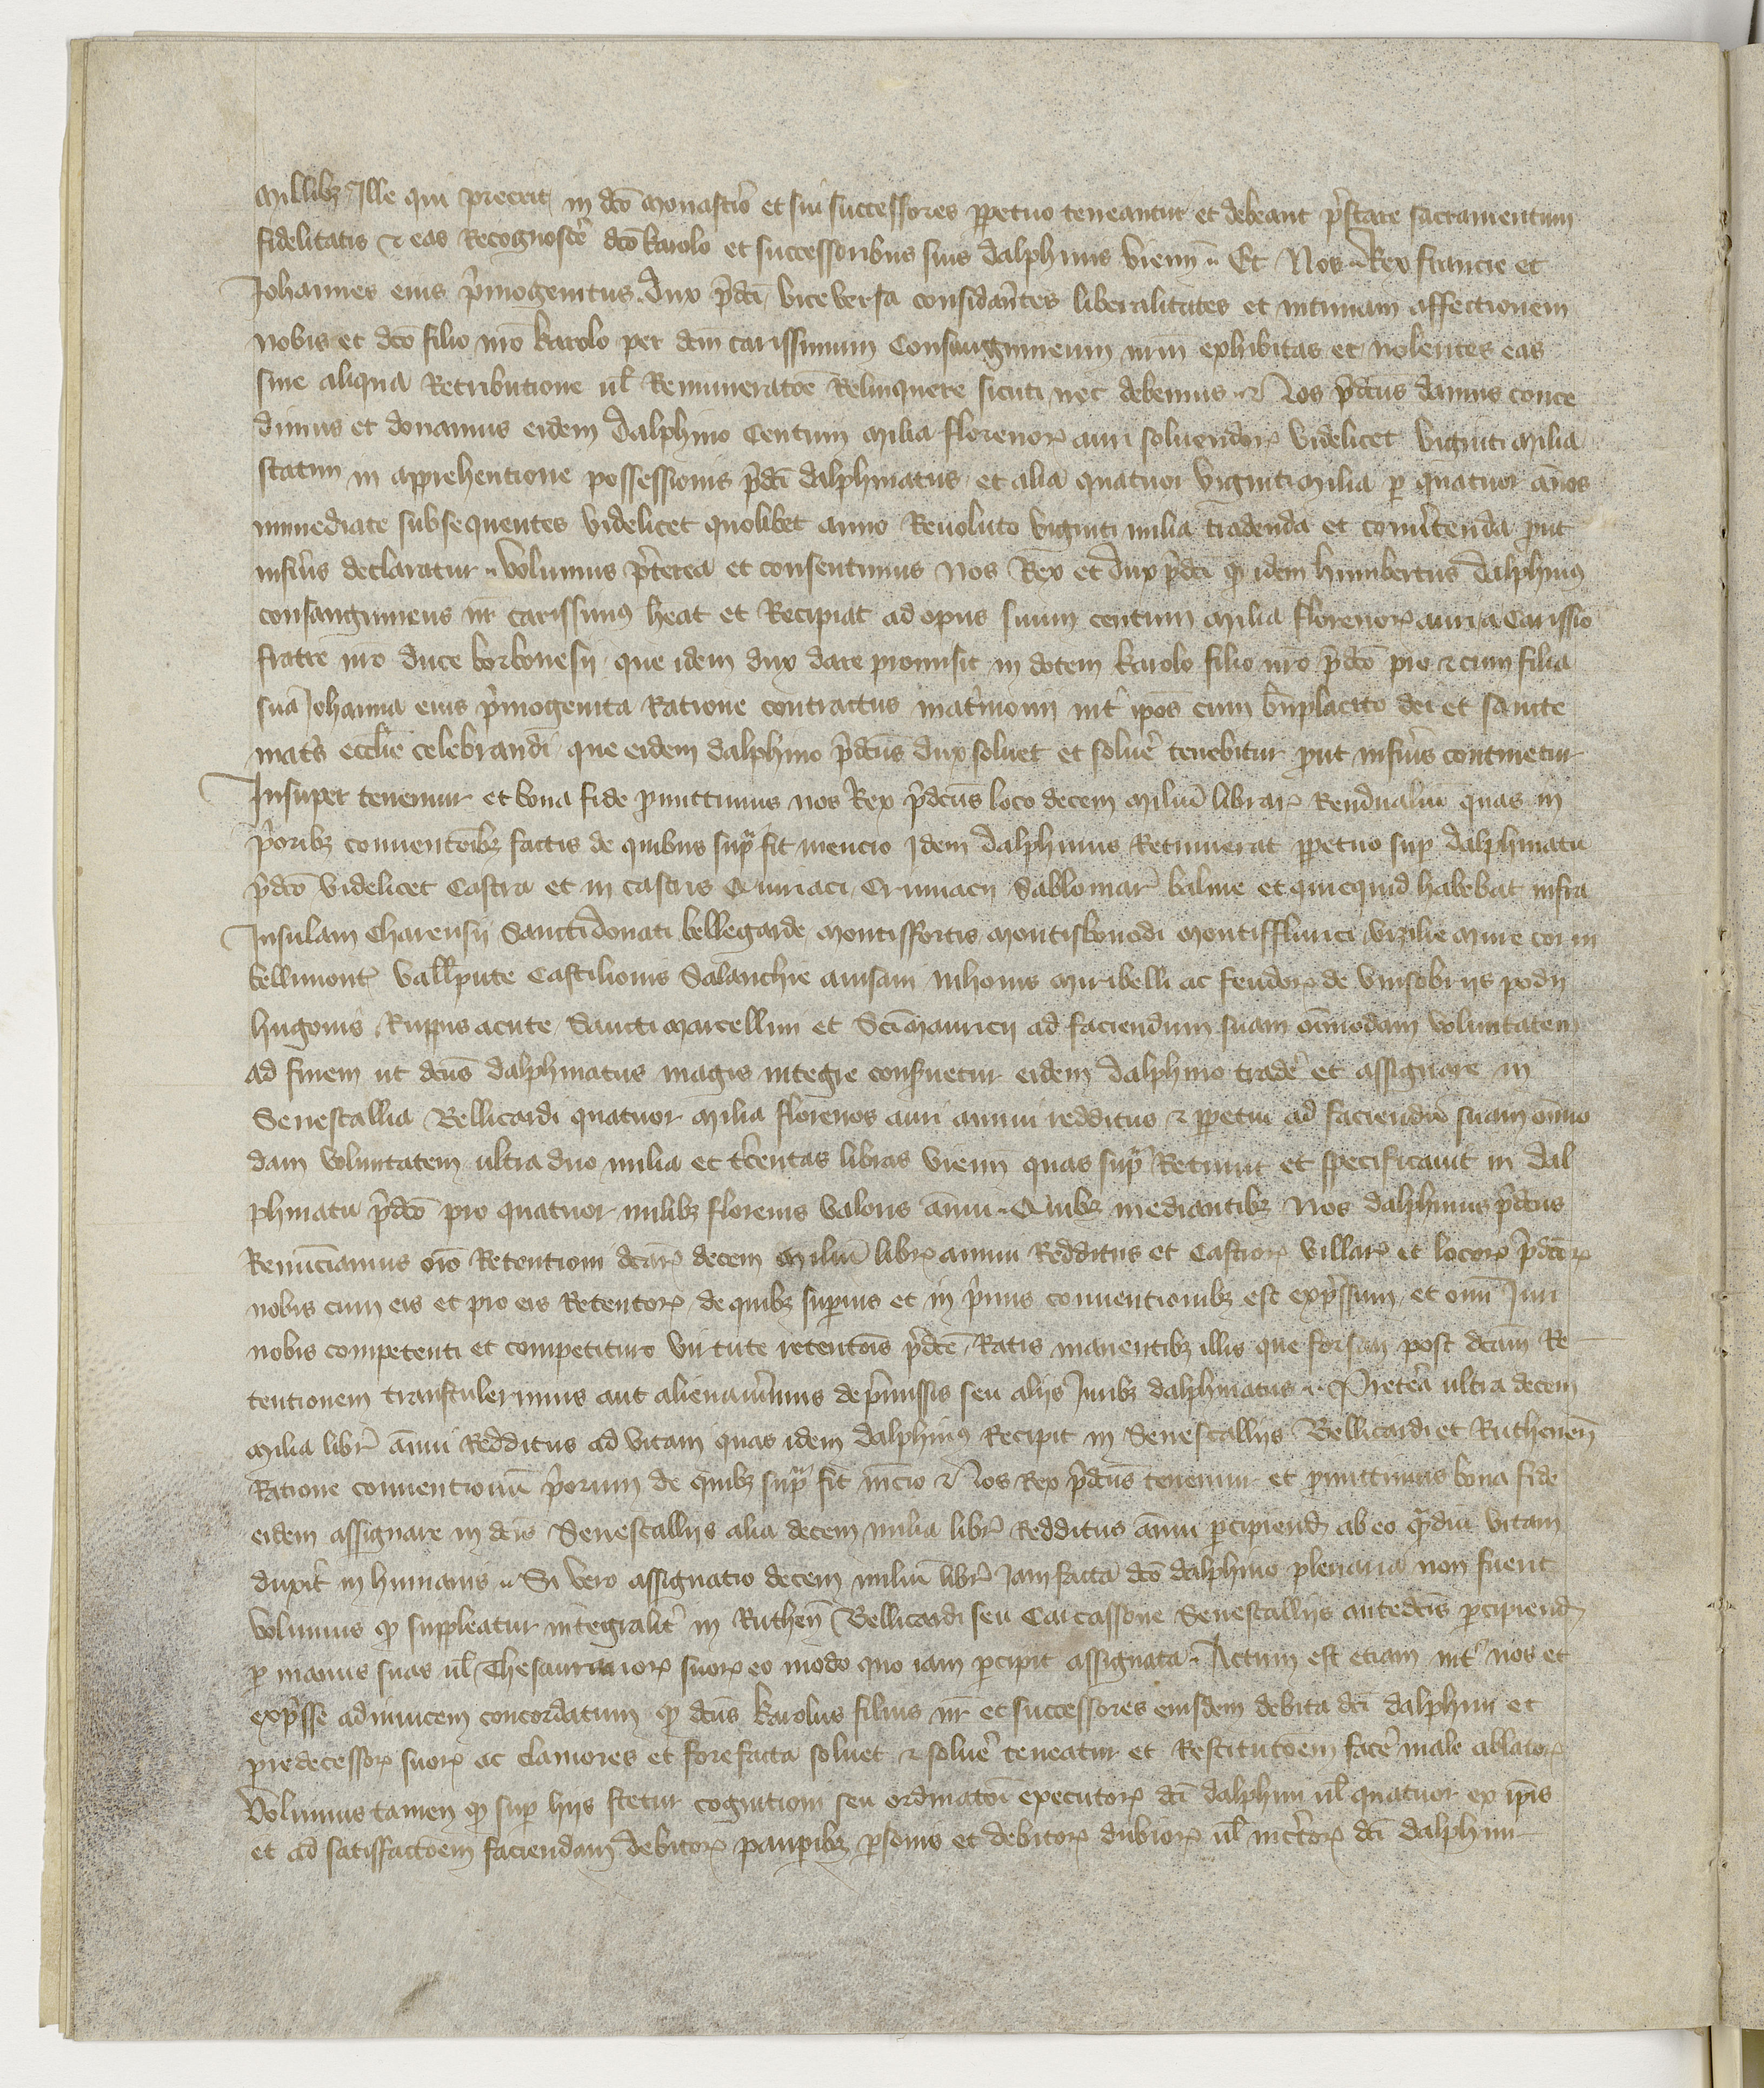 millibz Ille qui preerit in dc̄o monast̾io et sui successores ꝑpetuo teneantur et debeant p̾stare sacramentum
fidelitatis ⁊ eas Recognosce̾ dc̄o karolo et successoribus suis dalphinis vienn̄ Et Nos Rex francie et
Johannes eius p̾mogenitus Dux p̾dc̄i vice versa considan̾tes liberalitates et intimam affectionem
nobis et dc̄o filio nr̄o karolo per dc̄m carissimum Consanguineum nr̄m exhibitas et nolentes eas
sine aliqua Retributione ul̄ Remuneratoē Relinquere sicuti nec debemus ⁊ Nos p̾dc̄us damus conce
dimus et donamus eidem dalphino Centum milia florenoꝝ auri soluendoꝝ videlicet viginti milia
statim in apprehentione possessionis p̾dc̄i dalphinatus et alia quatuor viginti milia ꝑ quatuor an̄os
immediate subsequentes videlicet quolibet anno Reuoluto viginti milia tradenda et conu̾tenda ꝓut
inferi̾s declaratur volumus p̾terea et consentimus nos Rex et Dux p̾dc̄i ꝙ idem humbertus Dalphinꝰ
consanguineus nr̄ carissimꝰ heat et Recipiat ad opus suum centum milia florenoꝝ auri a Carissio
fratre nr̄o duce borbonesij que idem dux dare promisit in dotem karolo filio nr̄o p̾dc̄o pro ⁊ cum filia
sua Johanna eius p̾mogenita Ratione contractus mat̾monii int̾ ip̄os cum bn̄placito dei et sancte
mat̾s eccl̄ie celebrandi que eidem dalphino p̾dc̄us dux soluet et solue̾ tenebitur ꝓut inferi̾s continetur
Insuper tenemur et bona fide ꝓmittimus nos Rex p̾dc̄us loco decem miliū libraꝝ Rendualiū quas in
p̾oribz conuentoībz factis de quibus sup̾ fit mencio Idem dalphinus Retinuerat ꝑpetuo suꝑ dalphinatu
p̾dc̄o videlicet Castra et in castris Quiriaci Crimiacii Sablonar̾ balme et quicquid habebat infra
Insulam Charensii Sancti donati bellegarde montisfortis montisbonodi montisfluriti vizilie mure cor in
bellimont̾ Vall̄pute Castilionis Salanchie auisani nihonis miribelli ac feudoꝝ de vinsobriis podii
hugonis Rupis acute Sancti marcellini et Sc̄i mauricij ad faciendum suam oī̄modam voluntatem
ad finem ut dc̄us dalphinatus magis integre conseruetur eidem dalphino trade̾ et assignare in
Senescallia Bellicardi quatuor milia florenos auri annui redditus ⁊ ꝑpetui ad faciendū suam oīmo
dam voluntatem ultra duo milia et t̾centas libras vienn̄ quas sup̾ Retinuit et specificauit in dal
phinatu p̾dc̄o pro quatuor milibz florenis valoris annui Quibz mediantibz Nos dalphinus p̾dc̄us
Renūciamus oīō Retentioni dc̄aꝝ decem miliū libr̾ annui Redditus et Castroꝝ villaꝝ et locoꝝ p̾dc̄oꝝ
nobis cum eis et pro eis Retentoꝝ de quibz superius et in p̾mis conuentionibz est exp̾ssum et omī Juri
nobis competenti et competituro virtute retentoīs p̾dc̄e Ratis manentibz illis que forsan post dc̄am Re
tentionem transtulerimus aut alienaui̾mus de p̾missis seu alijs Juribz dalphinatus ⁊ P̾terea ultra decem
milia libr̾ annui Redditus ad vitam quas idem dalphinꝰ Recipit in Senescallijs Bellicardi et Ruthenen̄
Ratione conuentionū p̾orum de quibz sup̾ fit mēcio ⁊ Nos Rex p̾dc̄us tenemur et ꝓmittimus bona fide
eidem assignare in dc̄is Senescallijs alia decem milia libr̾ Redditus annui ꝑcipiend̾ ab eo q̾diu vitam
duxit̾ in humanis Si vero assignatio decem miliū libr̾ iam facta dc̄o dalphino plenaria non fuerit
volumus ꝙ suppleatur integralit̾ in Ruthen̄ Bellicardi seu Carcassone Senescallijs antedc̄is ꝑcipiend̾
ꝑ manus suas ul̄ Thesaurarioꝝ suoꝝ eo modo quo iam percipit assignata Actum est etiam int̾ nos et
exp̾sse adinuicem concordatum ꝙ dc̄us karolus filius nr̄ et successores eiusdem debita dc̄i dalphini et
predecessoꝝ suoꝝ ac clamores et forefacta soluet ⁊ solue̾ teneatur et Restitutoēm face̾ male ablatoꝝ
Volumus tamen ꝙ suꝑ hijs stetur cognitioni seu ordinatoī executoꝝ dc̄i dalphini ul̄ quatuor ex ip̄is
et ad satisfactoēm faciendam debitoꝝ pauꝑibz ꝑsonis et debitoꝝ dubioꝝ ul̄ inc̾toꝝ dc̄i dalphini